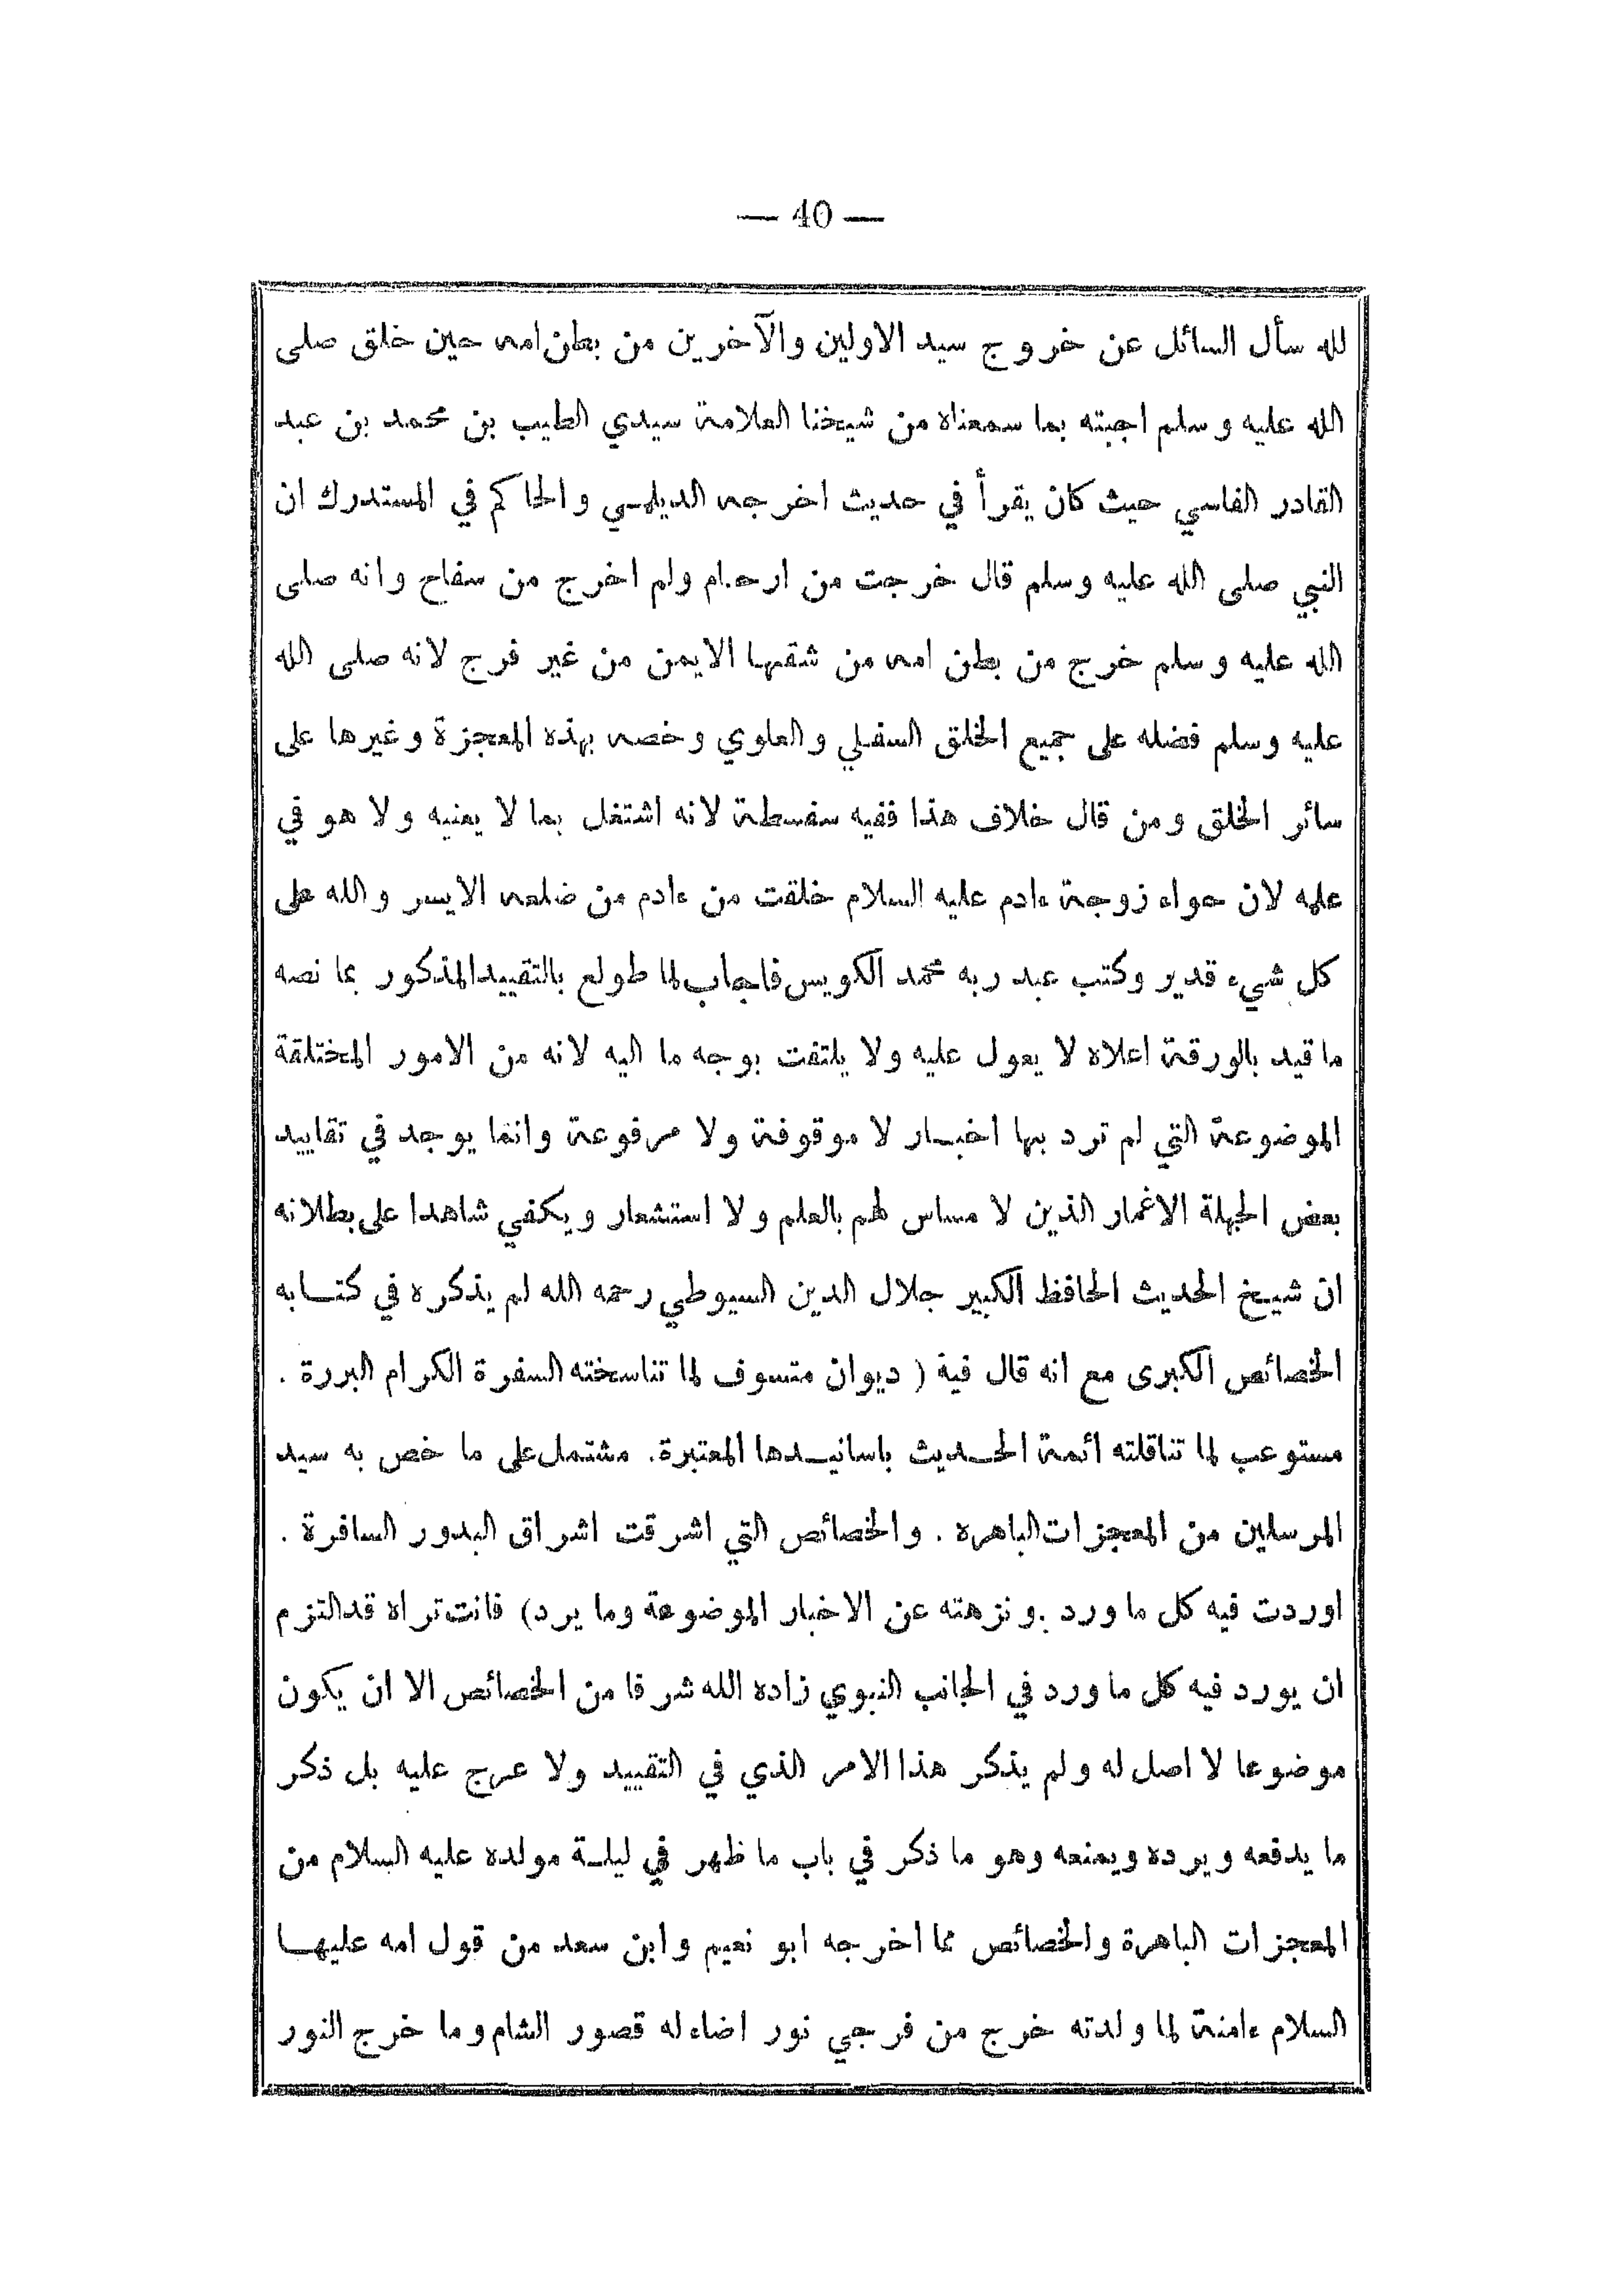 — 40 —
لله سأل السائل عن خروج سيد الاولين والآخرين من بطن امه حين خلق صلى
الله عليه وسلم اجبته بما سمعناه من شيخنا العلامة سيدي الطيب بن محمد بن عبد
القادر الفاسي حيث كان يقرأ في حديث اخرجه الديلمي والحاكم في المستدرك ان
النبي صلى الله عليه وسلم قال خرجت من ارحام ولم اخرج من سفاح وانه صلى
الله عليه وسلم خرج من بطن امه من شقها الايمن من غير فرج لانه صلى الله
عليه وسلم فضله على جميع الخلق السفلي والعلوي وخصه بهذه المعجزة وغيرها على
سائر الخلق ومن قال خلاف هذا ففيه سفسطة لانه اشتغل بما لا يعنيه ولا هو في
علمه لان حواء زوجة ءادم عليه السلام خلقت من ءادم من ضلعه الايسر والله على
كل شيء قدير وكتب عبد ربه محمد الكويس فاجاب لما طولع بالتقييد المذكور بما نصه
ما قيد بالورقة اعلاه لا يعول عليه ولا يلتفت بوجه ما اليه لانه من الامور المختلقة
الموضوعة التي لم ترد بها اخبار لا موقوفة ولا مرفوعة وانما يوجد في تقاييد
بعض الجهلة الاغمار الذين لا مساس لهم بالعلم ولا استشعار ويكفي شاهدا على بطلانه
ان شيخ الحديث الحافظ الكبير جلال الدين السيوطي رحمه الله لم يذكره في كتابه
الخصائص الكبرى مع انه قال فية ( ديوان متسوف لما تناسخته السفرة الكرام البررة .
مستوعب لما تناقلته ائمة الحديث باسانيدها المعتبرة. مشتمل على ما خص به سيد
المرسلين من المعجزات الباهره . والخصائص التي اشرقت اشراق البدور السافرة .
اوردت فيه كل ما ورد .ونزهته عن الاخبار الموضوعة وما يرد) فانت تراه قد التزم
ان يورد فيه كل ما ورد في الجانب النبوي زاده الله شرفا من الخصائص الا ان يكون
موضوعا لا اصل له ولم يذكر هذا الامر الذي في التقييد ولا عرج عليه بل ذكر
ما يدفعه ويرده ويمنعه وهو ما ذكر في باب ما ظهر في ليلة مولده عليه السلام من
المعجزات الباهرة والخصائص مما اخرجه ابو نعيم وابن سعد من قول امه عليها
السلام ءامنة لما ولدته خرج من فرجي نور اضاء له قصور الشام وما خرج النور